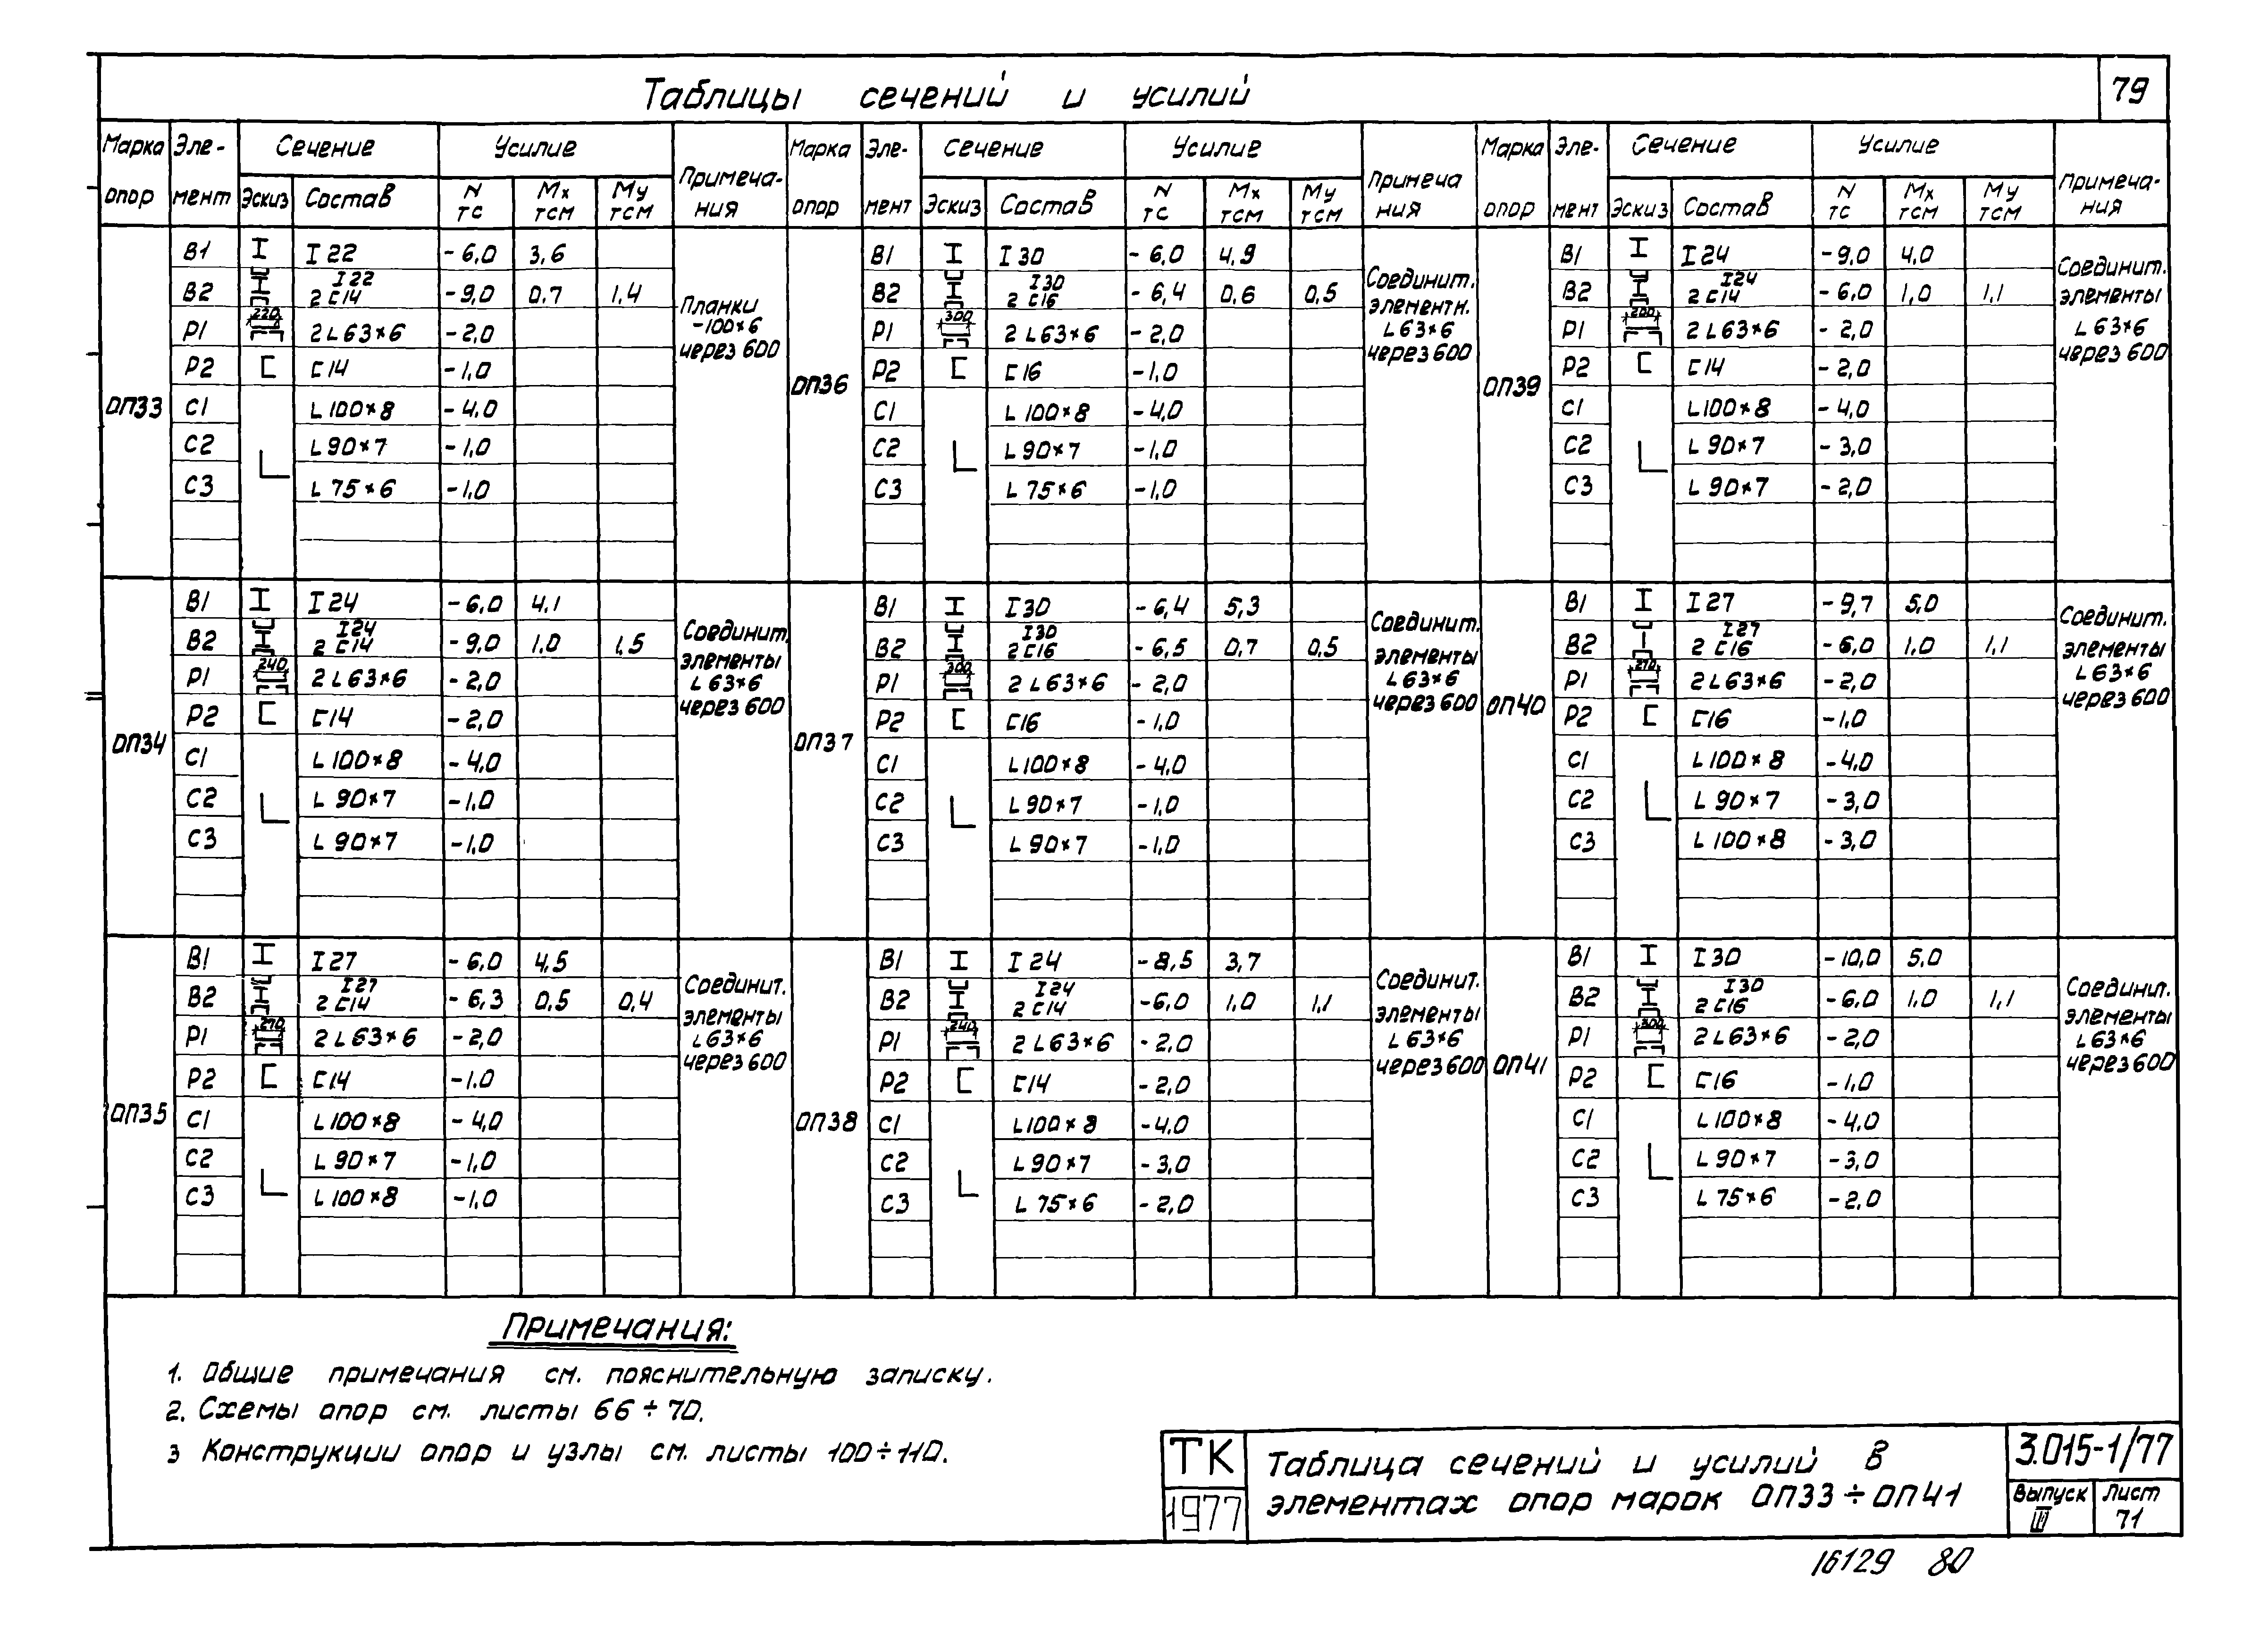 79
Таблицы сечений и усилий
Марка опор Эле-мент Сечение Усилие Примеча-ния Марка опор Эле-мент Сечение Усилие Примеча ния Марка опор Эле-мент Сечение Усилие Примеча-ния
Эскиз Состав N тс Mx тсм My тсм Эскиз Состав N тс Mx тсм My тсм Эскиз Состав N тс Mx тсм My тсм
ОП33
В1 I 22 -6,0 3,6
В2 I 22 2 С14 -9,0 0,7 1,4
Р1 220 2 L 63×6 -2,0
Р2 С14 -1,0
С1 L 100×8 -4,0
С2 L 90×7 -1,0
С3 L 75×6 -1,0
Планки
-100×6
через 600
ОП34
В1 I 24 -6,0 4,1
В2 I 24 2 С14 -9,0 1,0 1,5
Р1 240 2 L 63×6 -2,0
Р2 С14 -2,0
С1 L 100×8 -4,0
С2 L 90×7 -1,0
С3 L 90×7 -1,0
Соединит.
элементы
L 63×6
через 600
ОП35
В1 I 27 -6,0 4,5
В2 I 27 2 С14 -6,3 0,5 0,4
Р1 270 2 L 63×6 -2,0
Р2 С14 -1.0
С1 L 100×8 -4,0
С2 L 90×7 -1,0
С3 L 100×8 -1,0
Соединит.
элементы
L 63×6
через 600
ОП36
В1 I 30 -6,0 4,9
В2 I 30 2 С16 -6,4 0,6 0,5
Р1 300 2 L 63×6 -2,0
Р2 С16 -1,0
С1 L 100×8 -4,0
С2 L 90×7 -1,0
С3 L 75×6 -1,0
Соединит.
элементн.
L 63×6
через 600
ОП37
В1 I 30 -6,4 5,3
В2 I 30 2 С16 -6,5 0,7 0,5
Р1 300 2 L 63×6 -2,0
Р2 С16 -1,0
С1 L 100×8 -4,0
С2 L 90×7 -1,0
С3 L 90×7 -1,0
Соединит.
элементы
L 63×6
через 600
ОП38
В1 I 24 -8,5 3,7
В2 I 24 2 С14 -6,0 1,0 1,1
Р1 240 2 L 63×6 -2.0
Р2 С14 -2,0
С1 L 100×8 -4.0
С2 L 90×7 -3,0
С3 L 75×6 -2,0
Соединит.
элементы
L 63×6
через 600
ОП39
В1 I 24 -9,0 4,0
В2 I 24 2 С14 -6,0 1,0 1,1
Р1 200 2 L 63×6 -2,0
Р2 С14 -2,0
С1 L 100×8 -4,0
С2 L 90×7 -3,0
С3 L 90×7 -2,0
Соединит.
элементы
L 63×6
через 600
ОП40
В1 I 27 -9,7 5,0
В2 I 27 2 С16 -6,0 1,0 1,1
Р1 270 2 L 63×6 -2,0
Р2 С16 -1,0
С1 L 100×8 -4,0
С2 L 90×7 -3,0
С3 L 100×8 -3,0
Соединит.
элементы
L 63×6
через 600
ОП41
В1 I 30 -10,0 5,0
В2 I 30 2 С16 -6,0 1,0 1,1
Р1 300 2 L 63×6 -2,0
Р2 С16 -1,0
С1 L 100×8 -4,0
С2 L 90×7 -3,0
С3 L 75×6 -2,0
Соединит.
элементы
L 63×6
через 600
Примечания:
1. Общие примечания см. пояснительную записку.
2. Схемы опор см. листы 66÷70.
3 Конструкции опор и узлы см. листы 100÷110.
ТК
1977
Таблица сечений и усилий в
элементах опор марок ОП33÷ОП41
3.015-1/77
Выпуск III
Лист 71
16129 80